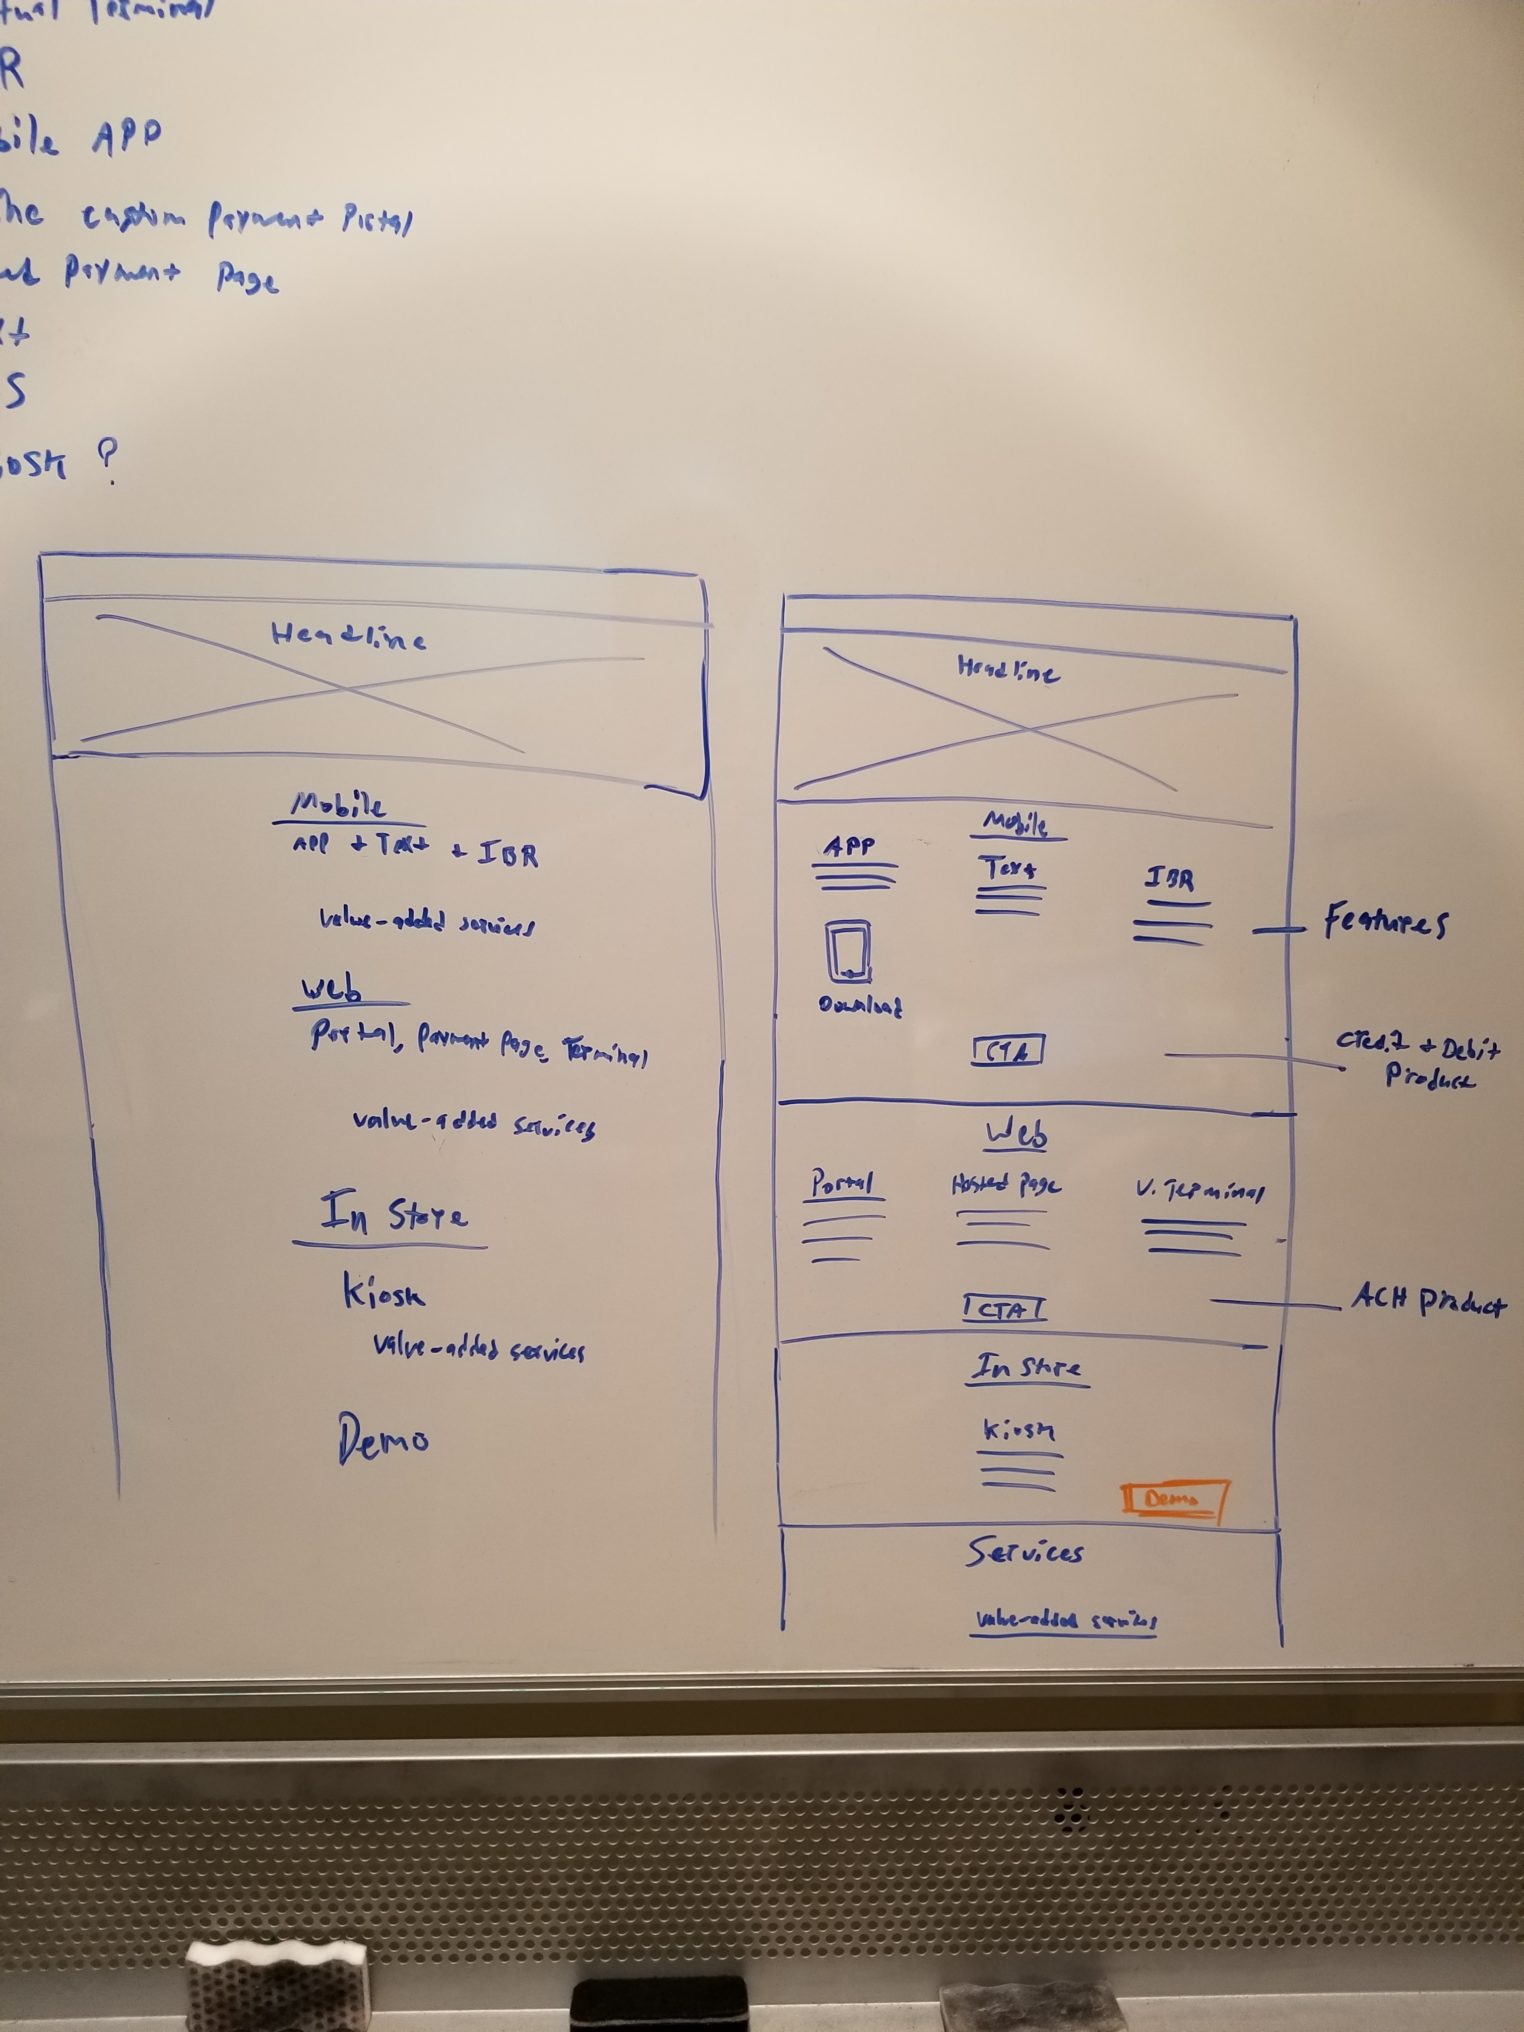 tual Terminal
R
bile APP
custom Payment Portal
Payment Page
S
osk ?
Headline
Mobile
APP + Text + IBR
value-added services
Web
Portal, Payment Page, Terminal
value-added services
In Store
Kiosk
value-added services
Demo
Headline
Mobile
APP Text IBR
Download
CTA
Features
Credit + Debit
Product
Web
Portal Hosted Page V. Terminal
CTA
ACH Product
In Store
Kiosk
Demo
Services
value-added services